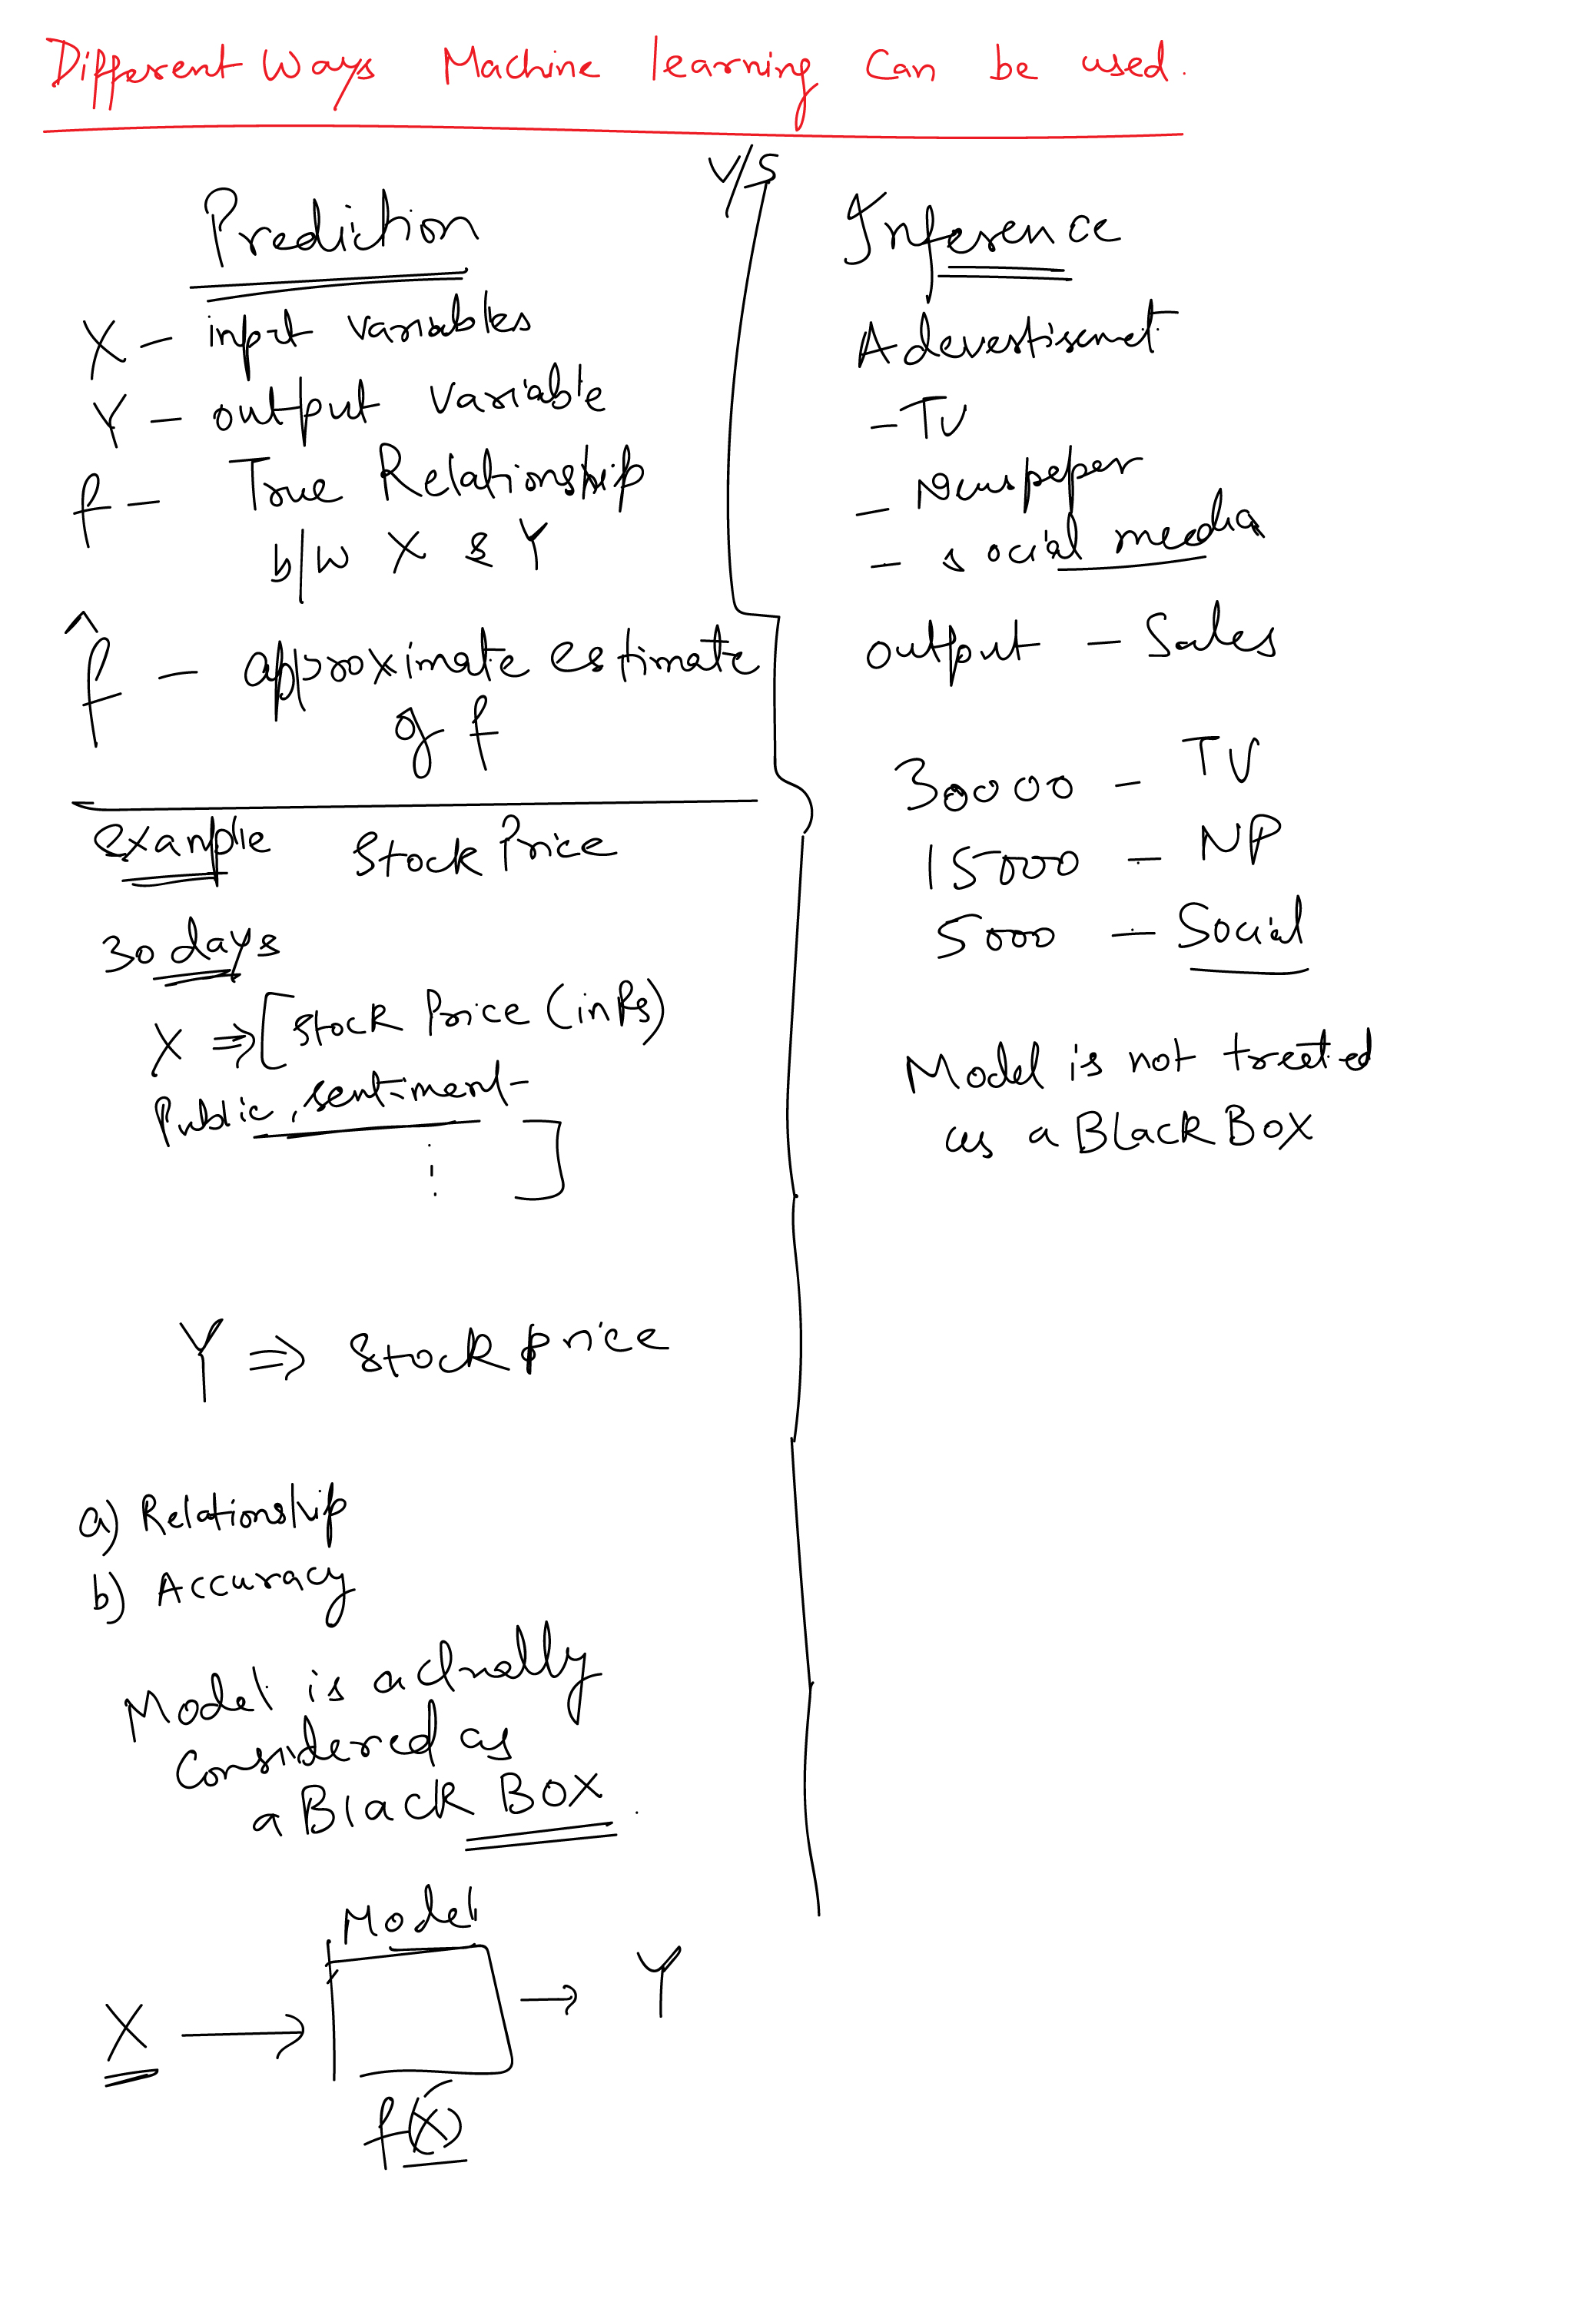 Different Ways Machine learning Can be used.
V/S
Prediction
X - input variables
Y - output variable
f - True Relationship
b/w X & Y
f̂ - approximate estimate
of f
Example Stock Price
30 days
X ⇒ [Stock Price (in Rs)
Public sentiment
⋮ ]
Y ⇒ Stock price
a) Relationship
b) Accuracy
Model is actually
Considered as
a Black Box.
Model
X → → Y
f(x)
Inference
Adevertisemet
- TV
- Newspeper
- social meedia
output - Sales
30000 - TV
15000 - NP
5000 - Social
Model is not treeted
as a Black Box